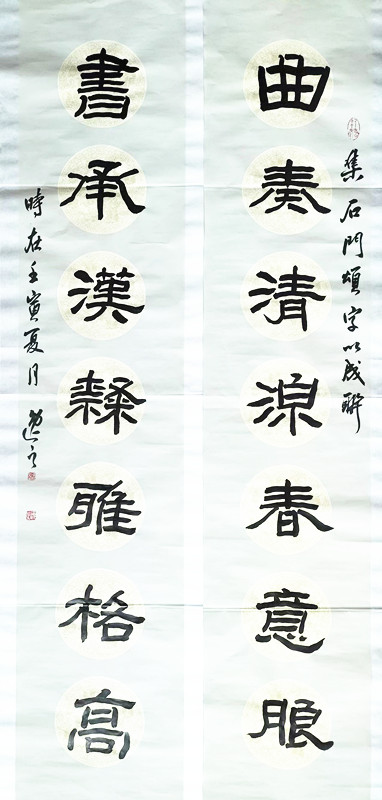 集石門頌字以成聯
曲奏清源春意朖
書承漢隸雅格高
時在壬寅夏月